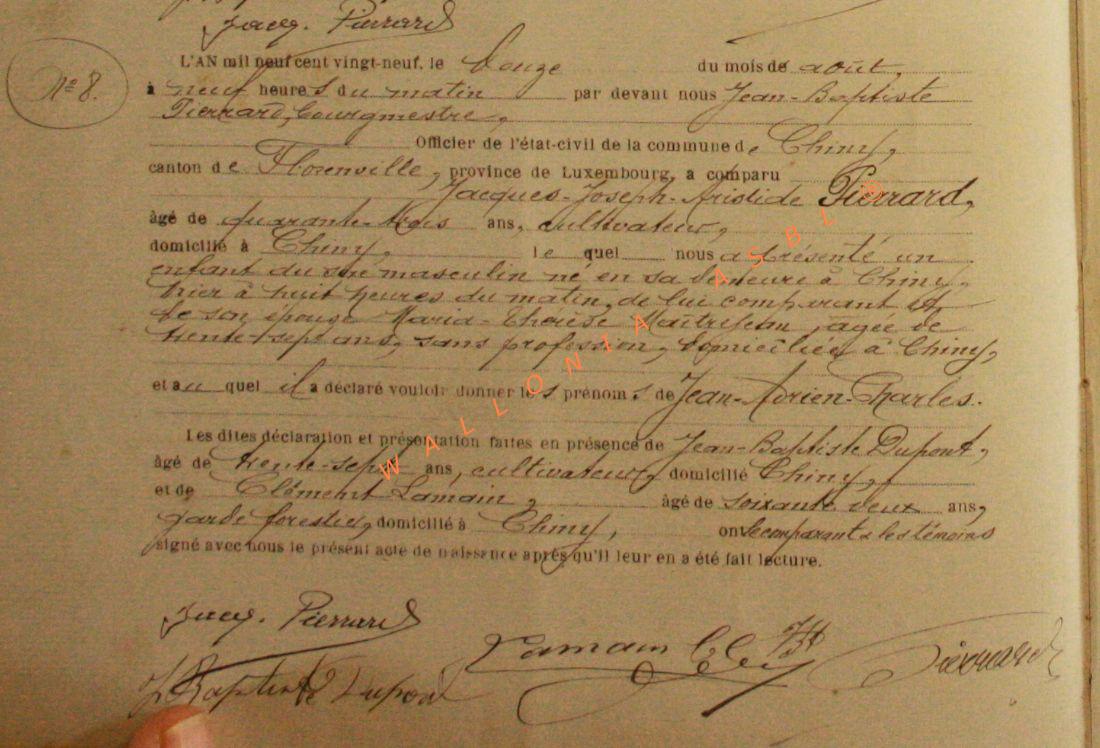 Jacq. Pierrard
No 8.
L'AN mil neuf cent vingt-neuf, le douze du mois de août,
à neuf heures du matin par devant nous Jean-Baptiste
Pierrard, bourgmestre,
Officier de l'état-civil de la commune de Chiny,
canton de Florenville, province de Luxembourg, a comparu
Jacques-Joseph-Aristide Pierrard,
âgé de quarante-trois ans, cultivateur,
domicilié à Chiny, le quel nous a présenté un
enfant du sexe masculin né en sa demeure à Chiny,
hier à huit heures du matin, de lui comparant et
de son épouse Maria-Thérèse Maîtrejean, agée de
trente-sept ans, sans profession, domiciliée à Chiny,
et au quel il a déclaré vouloir donner les prénoms de Jean-Adrien-Charles.
Les dites déclaration et présentation faites en présence de Jean-Baptiste Dupont,
âgé de trente-sept ans, cultivateur, domicilié Chiny,
et de Clément Lamain, âgé de soixante deux ans,
garde forestier, domicilié à Chiny, ont le comparant & les témoins
signé avec nous le présent acte de naissance après qu'il leur en a été fait lecture.
Jacq. Pierrard
Lamain Clém
Pierrard
J Baptiste Dupont
WALLONIA ASBL ©